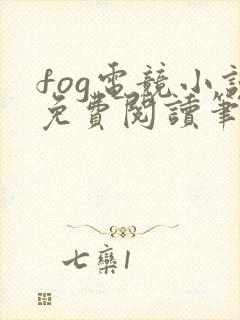 fog電競小說
免費閱讀筆
七欒1